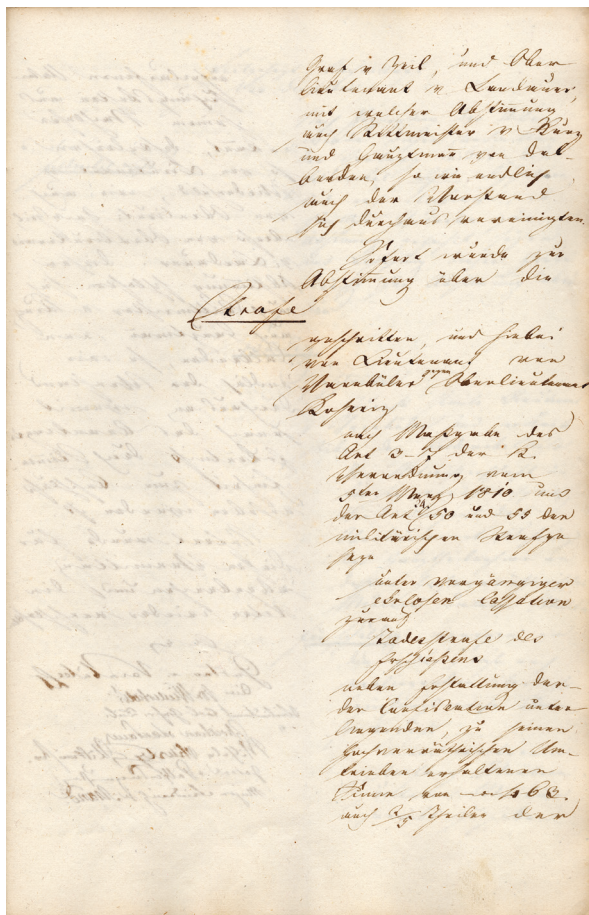 Graf v Zeil, und Ober
lieutenant v Landauer,
mit welcher Abstimmung
auch Rittmeister v Burg
und Hauptmann von Dal-
so wie endlich
auch der Vorstand
sich durchaus vereinigten.
Sofort wurde zur
Abstimmung über die
Strafe
geschritten, und hiebei
von Lieutenant von
Varnbüler gegen Oberlieutenant
Koseriz
nach Maßgabe des
Art 3–7 der K.
Verordnung vom
5ten März 1810 und
der Art 50 und 55 der
militärischen Strafge
seze
unter vorgängiger
ehrlosen Cassation
zur
Todesstrafe des
Erschießens
neben
der Confiscation unter
liegenden, zu seinen
hochverrätherischen Um-
trieben erhaltenen
Summe von 463.
auch 2/5 Theiler der